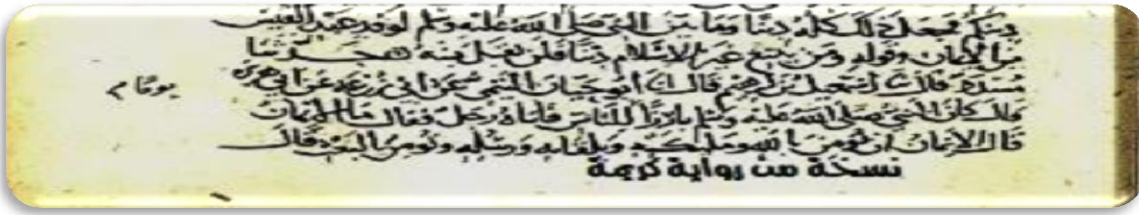 دينكم فجعل ذلك كله دينا وما بين النبي صلى الله عليه وسلم لوفد عبد القيس
من الايمان وقوله ومن يبتغ غير الاسلام دينا فلن يقبل منه حدثنا
مسدد قال ثنا اسمعيل بن ابرهيم قال انا ابو حيان التيمي عن ابي زرعة عن ابي هريرة
قال كان النبي صلى الله عليه وسلم بارزا للناس فاتاه رجل فقال ما الايمان
قال الايمان ان تؤمن بالله وملئكته وبلقائه ورسله وتؤمن بالبعث قال
نسخة من رواية كريمة